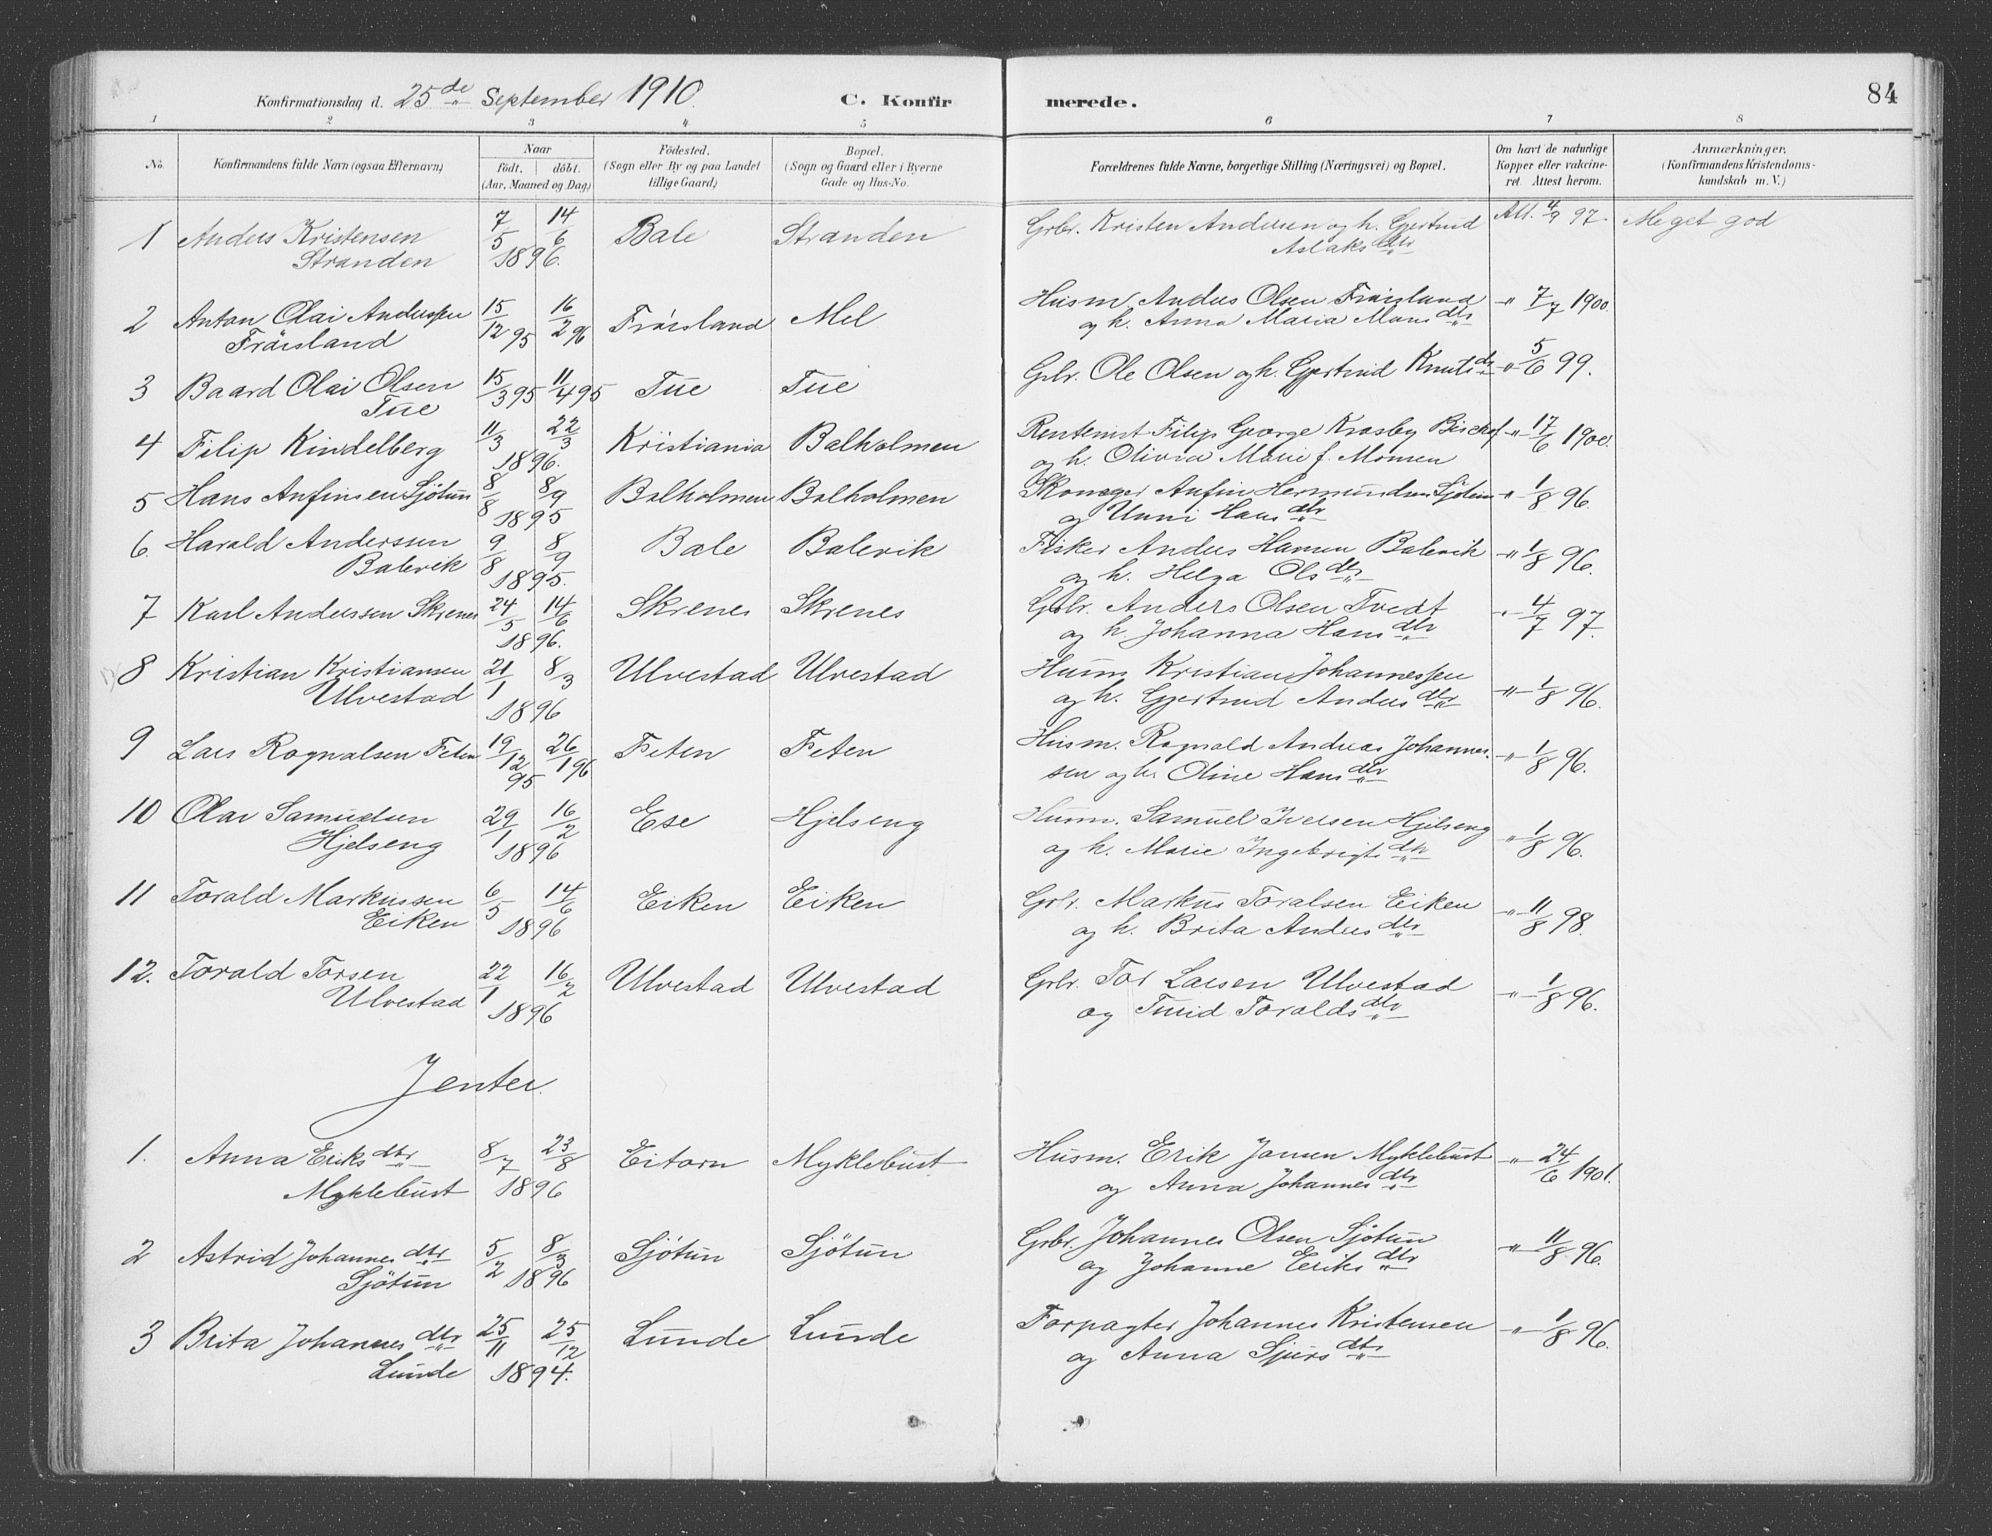 Konfirmationsdag d. 25de September 1910. C. Konfir merede. 84
1 2 3 4 5 6 7 8
No. Konfirmandens fulde Navn (ogsaa Efternavn) Naar födt. döbt. (Aar, Maaned og Dag) Födested. (Sogn eller By og paa Landet tillige Gaard) Bopæl. (Sogn og Gaard eller i Byerne Gade og Hus-No. Forældrenes fulde Navne, borgerlige Stilling (Næringsvei) og Bopæl. Om havt de naturlige Kopper eller vakcineret. Attest herom. Anmærkninger. (Konfirmandens Kristendomskundskab m. V.)
1 Anders Kristensen 7/5 14/6 Bale Stranden Grbr. Kristen Andersen og h. Gjertrud Att. 4/9 97. Meget god
Stranden 1896. Aslaksdtr
2 Anton Olai Anderssen 15/12 95 16/2 96 Fröisland Mel Husm. Anders Olsen Fröisland -"- 7/7 1900.
Fröisland og h. Anna Maria Monsdtr
3 Baard Olai Olsen 15/3 95 11/4 95 Tue Tue Grbr. Ole Olsen og h. Gjertrud Knutsdtr -"- 5/6 99.
Tue
4 Filip Kindelberg 11/3 22/3 Kristiania Balholmen Rentenist Filip George Krosby Bischof -"- 17/6 1900.
1896. og h. Olivia Marie f. Monsen
5 Hans Anfinsen Sjötun 8/8 8/9 Balholmen Balholmen Skomager Anfin Hermundsen Sjötun -"- 1/8 96.
1895 og Unni Hansdtr
6. Harald Andersen 9/8 8/9 Bale Balevik Fisker Anders Hansen Balevik -"- 1/8 96.
Balevik 1895. og h. Helga Olsdtr
7 Karl Anderssen Skrenes 24/5 14/6 Skrenes Skrenes Grbr. Anders Olsen Tvedt -"- 4/7 97.
1896. og h. Johanna Hansdtr
8 Kristian Kristiansen 21/1 8/3 Ulvestad Ulvestad Husm. Kristian Johannessen -"- 1/8 96.
Ulvestad 1896 og h. Gjertrud Andersdtr
9 Lars Ragnalsen Feten 19/12 95 26/1 96 Feten Feten Husm. Ragnald Andreas Johannes- -"- 1/8 96.
sen og h. Oline Hansdtr
10 Olai Samuelsen 29/1 16/2 Ese Hjelseng Husm. Samuel Iversen Hjelseng -"- 1/8 96.
Hjelseng 1896 og h. Marie Ingebrigtsdtr
11 Torald Markussen 6/5 14/6 Eiken Eiken Grbr. Markus Toralsen Eiken -"- 11/8 98.
Eiken 1896 og h. Brita Andersdtr
12. Torald Torsen 22/1 16/2 Ulvestad Ulvestad Grbr. Tor Larsen Ulvestad -"- 1/8 96.
Ulvestad 1896 og Turid Toraldsdtr
Jenter.
1. Anna Eriksdtr 8/7 23/8 Eitorn Myklebust Husm. Erik Jansen Myklebust -"- 24/6 1901.
Myklebust 1896 og Anna Johannesdtr
2 Astrid Johannesdtr 5/2 8/3 Sjötun Sjötun Grbr. Johannes Olsen Sjötun -"- 11/8 96.
Sjötun 1896 og Johanne Eriksdtr
3 Brita Johannesdtr 25/11 25/12 Lunde Lunde Forpagter Johannes Kristensen -"- 1/8 96.
Lunde 1894. og Anna Sjursdtr